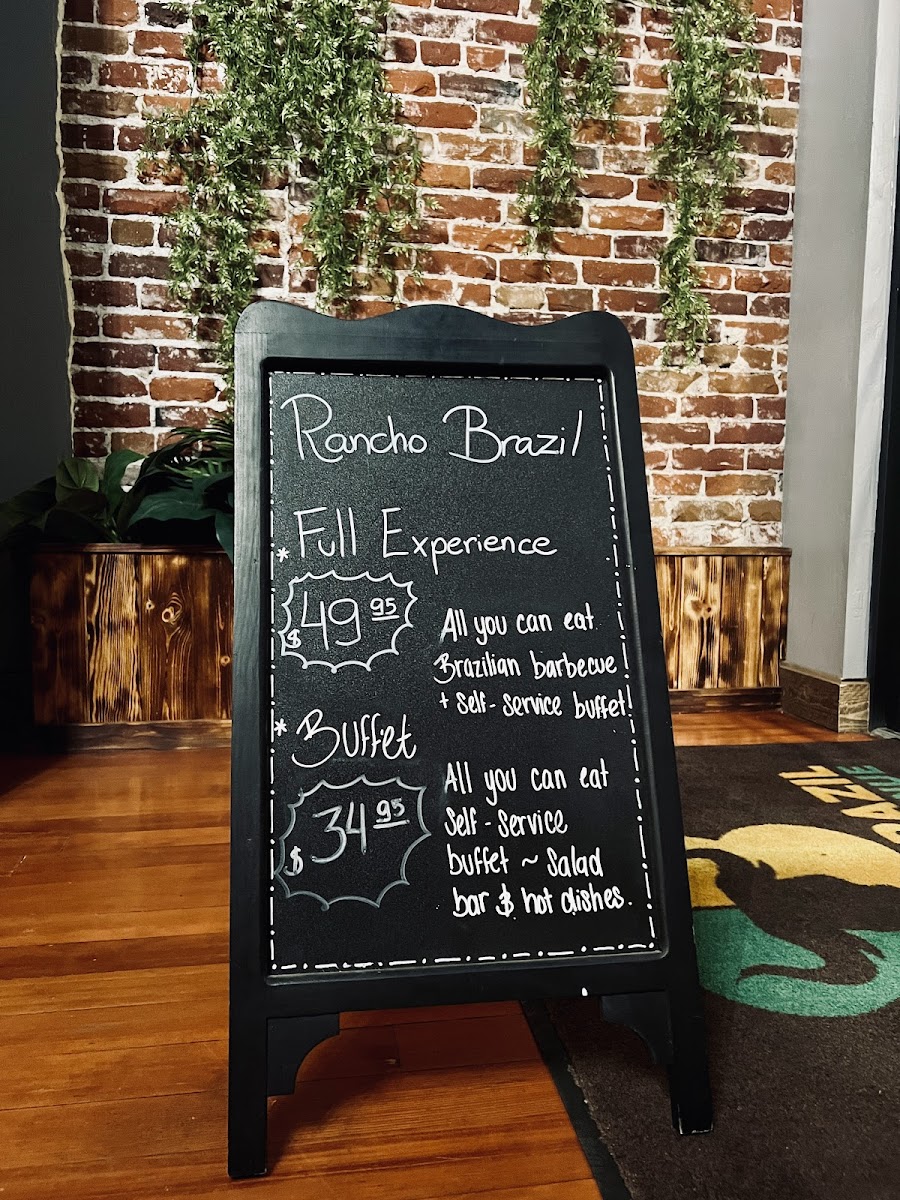 Rancho Brazil
* Full Experience
$49 95
All you can eat
Brazilian barbecue
+ Self-Service buffet!
* Buffet
$34 95
All you can eat
Self-Service
buffet ~ Salad
bar & hot dishes.
BRAZIL